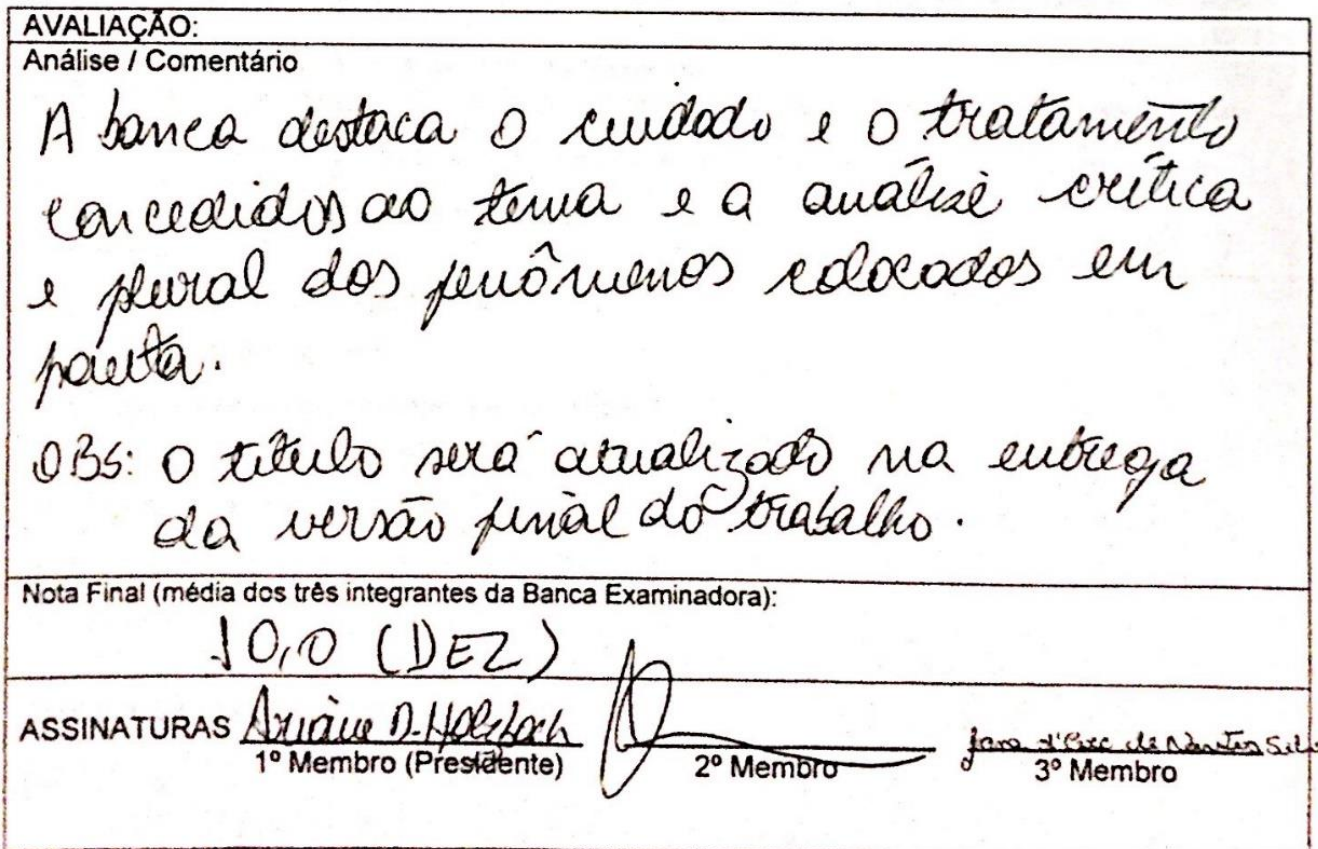 AVALIAÇÃO:
Análise / Comentário
A banca destaca o cuidado e o tratamento
concedidos ao tema e a análise crítica
e plural dos fenômenos colocados em
pauta.
OBS: O título será atualizado na entrega
da versão final do trabalho.
Nota Final (média dos três integrantes da Banca Examinadora):
10,0 (DEZ)
ASSINATURAS Ariane D. Holzbach
1º Membro (Presidente) 2º Membro 3º Membro